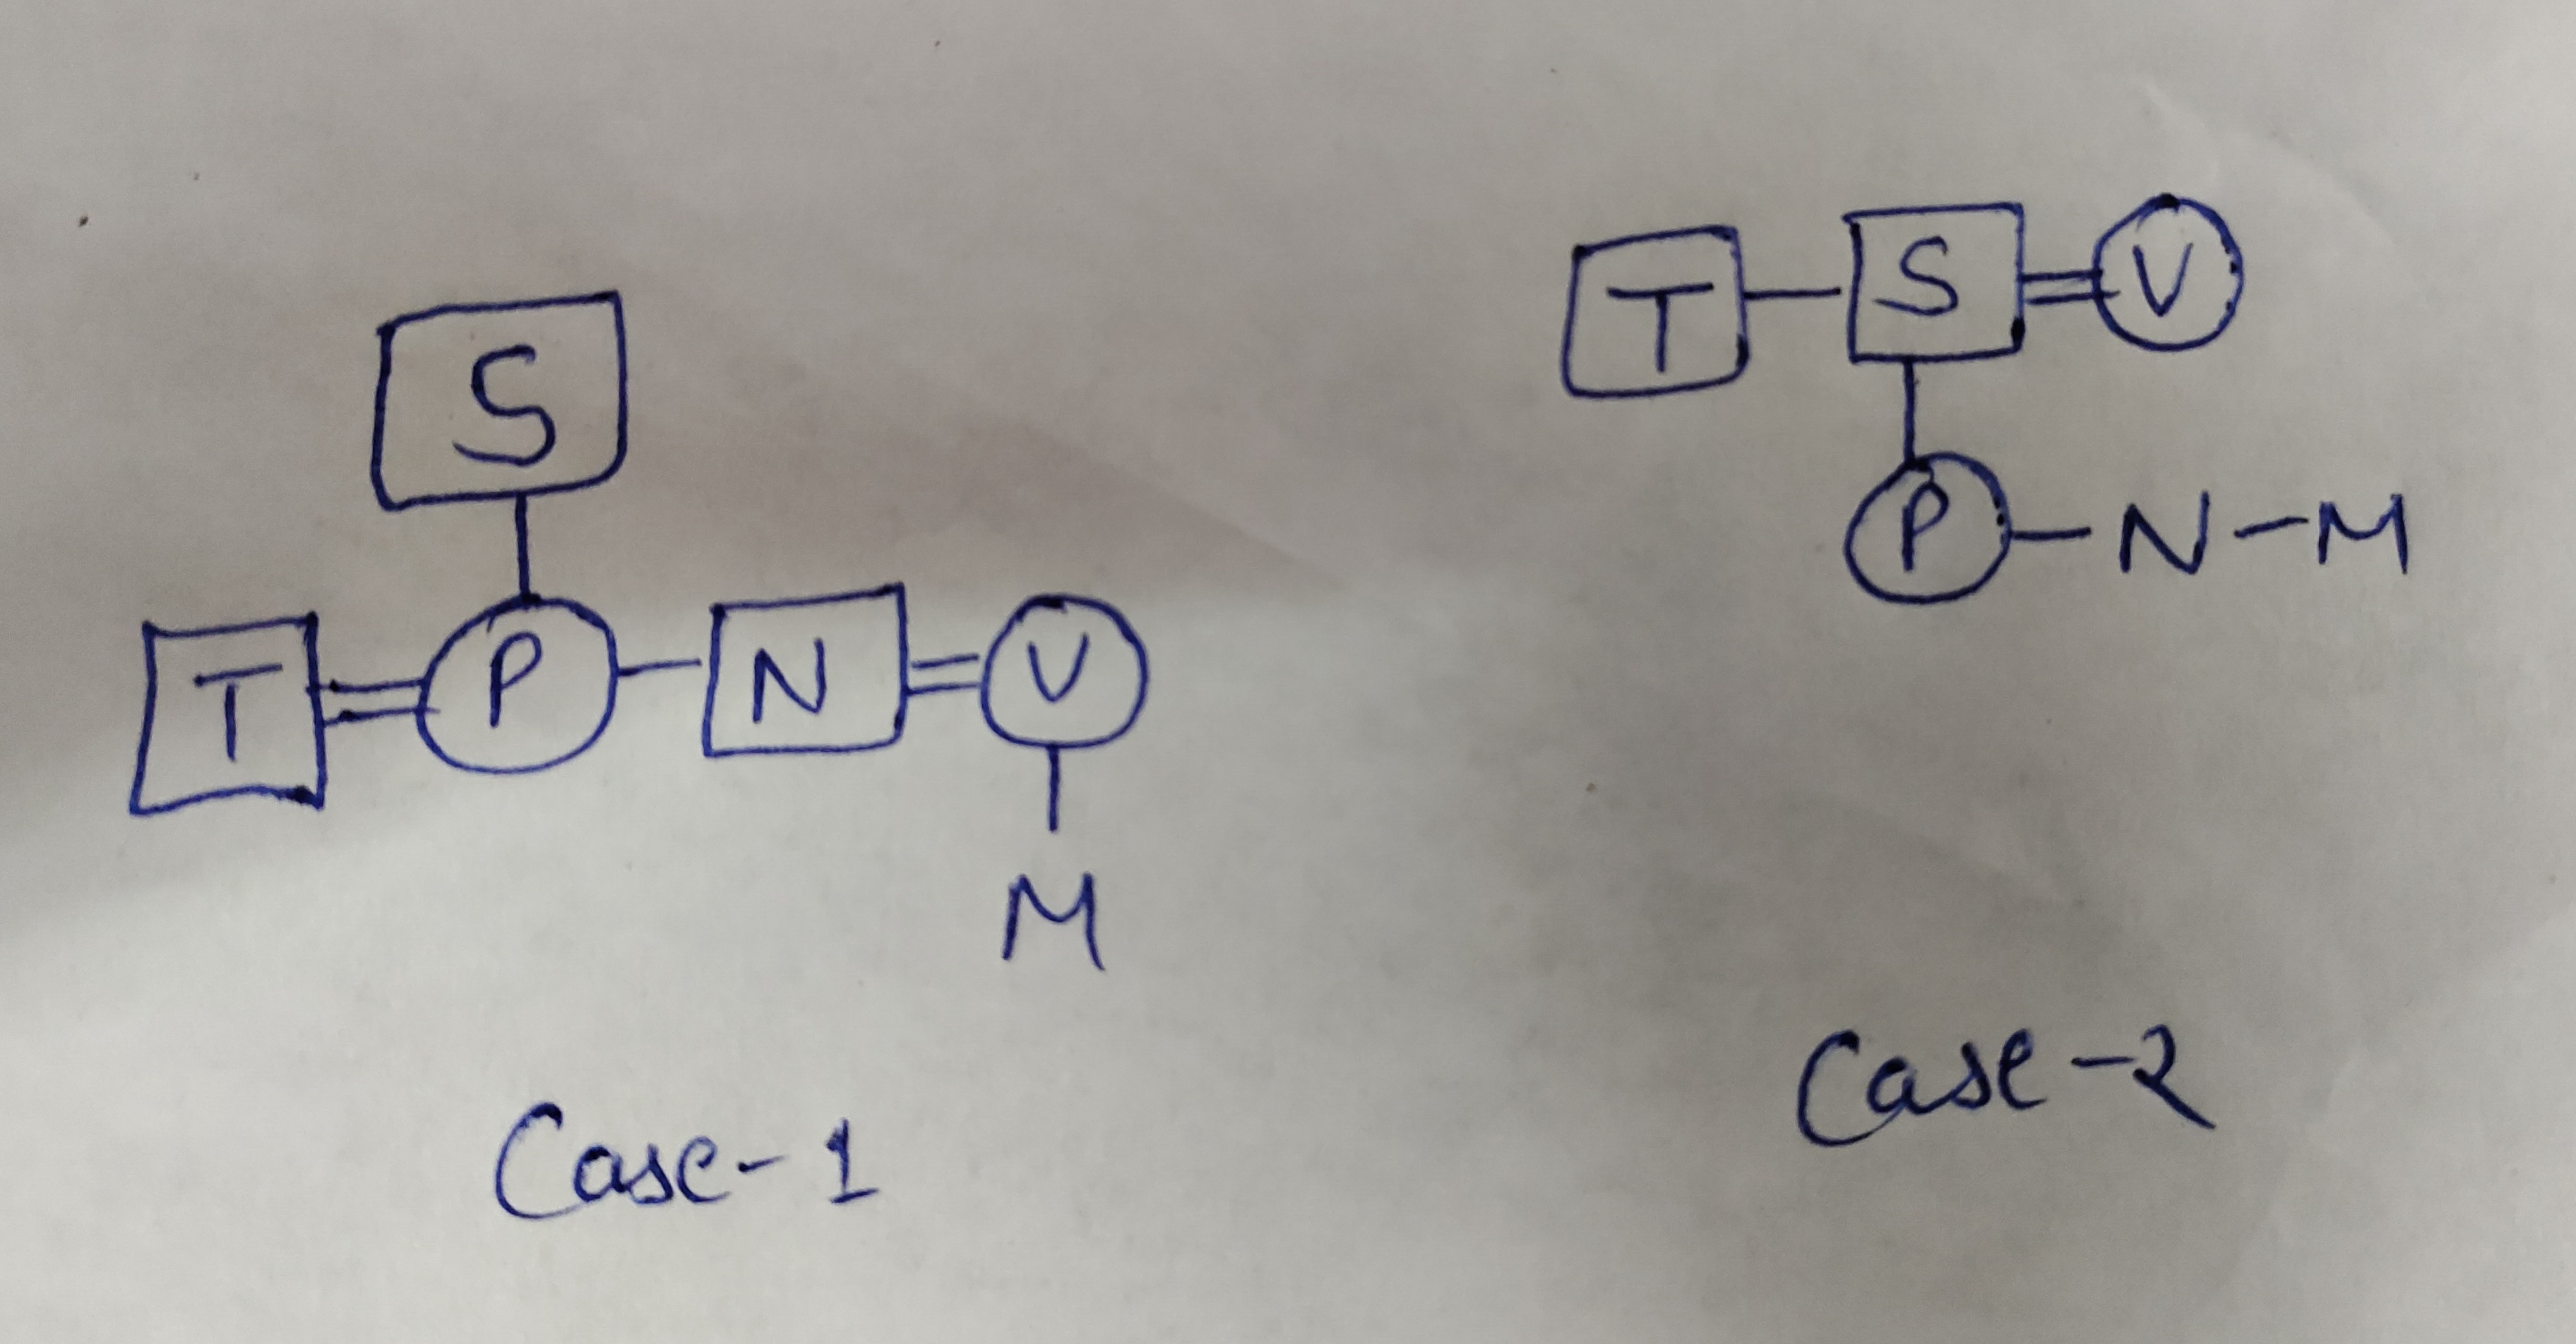 S
T = P - N = V
M
Case-1
T - S = V
P - N - M
Case-2